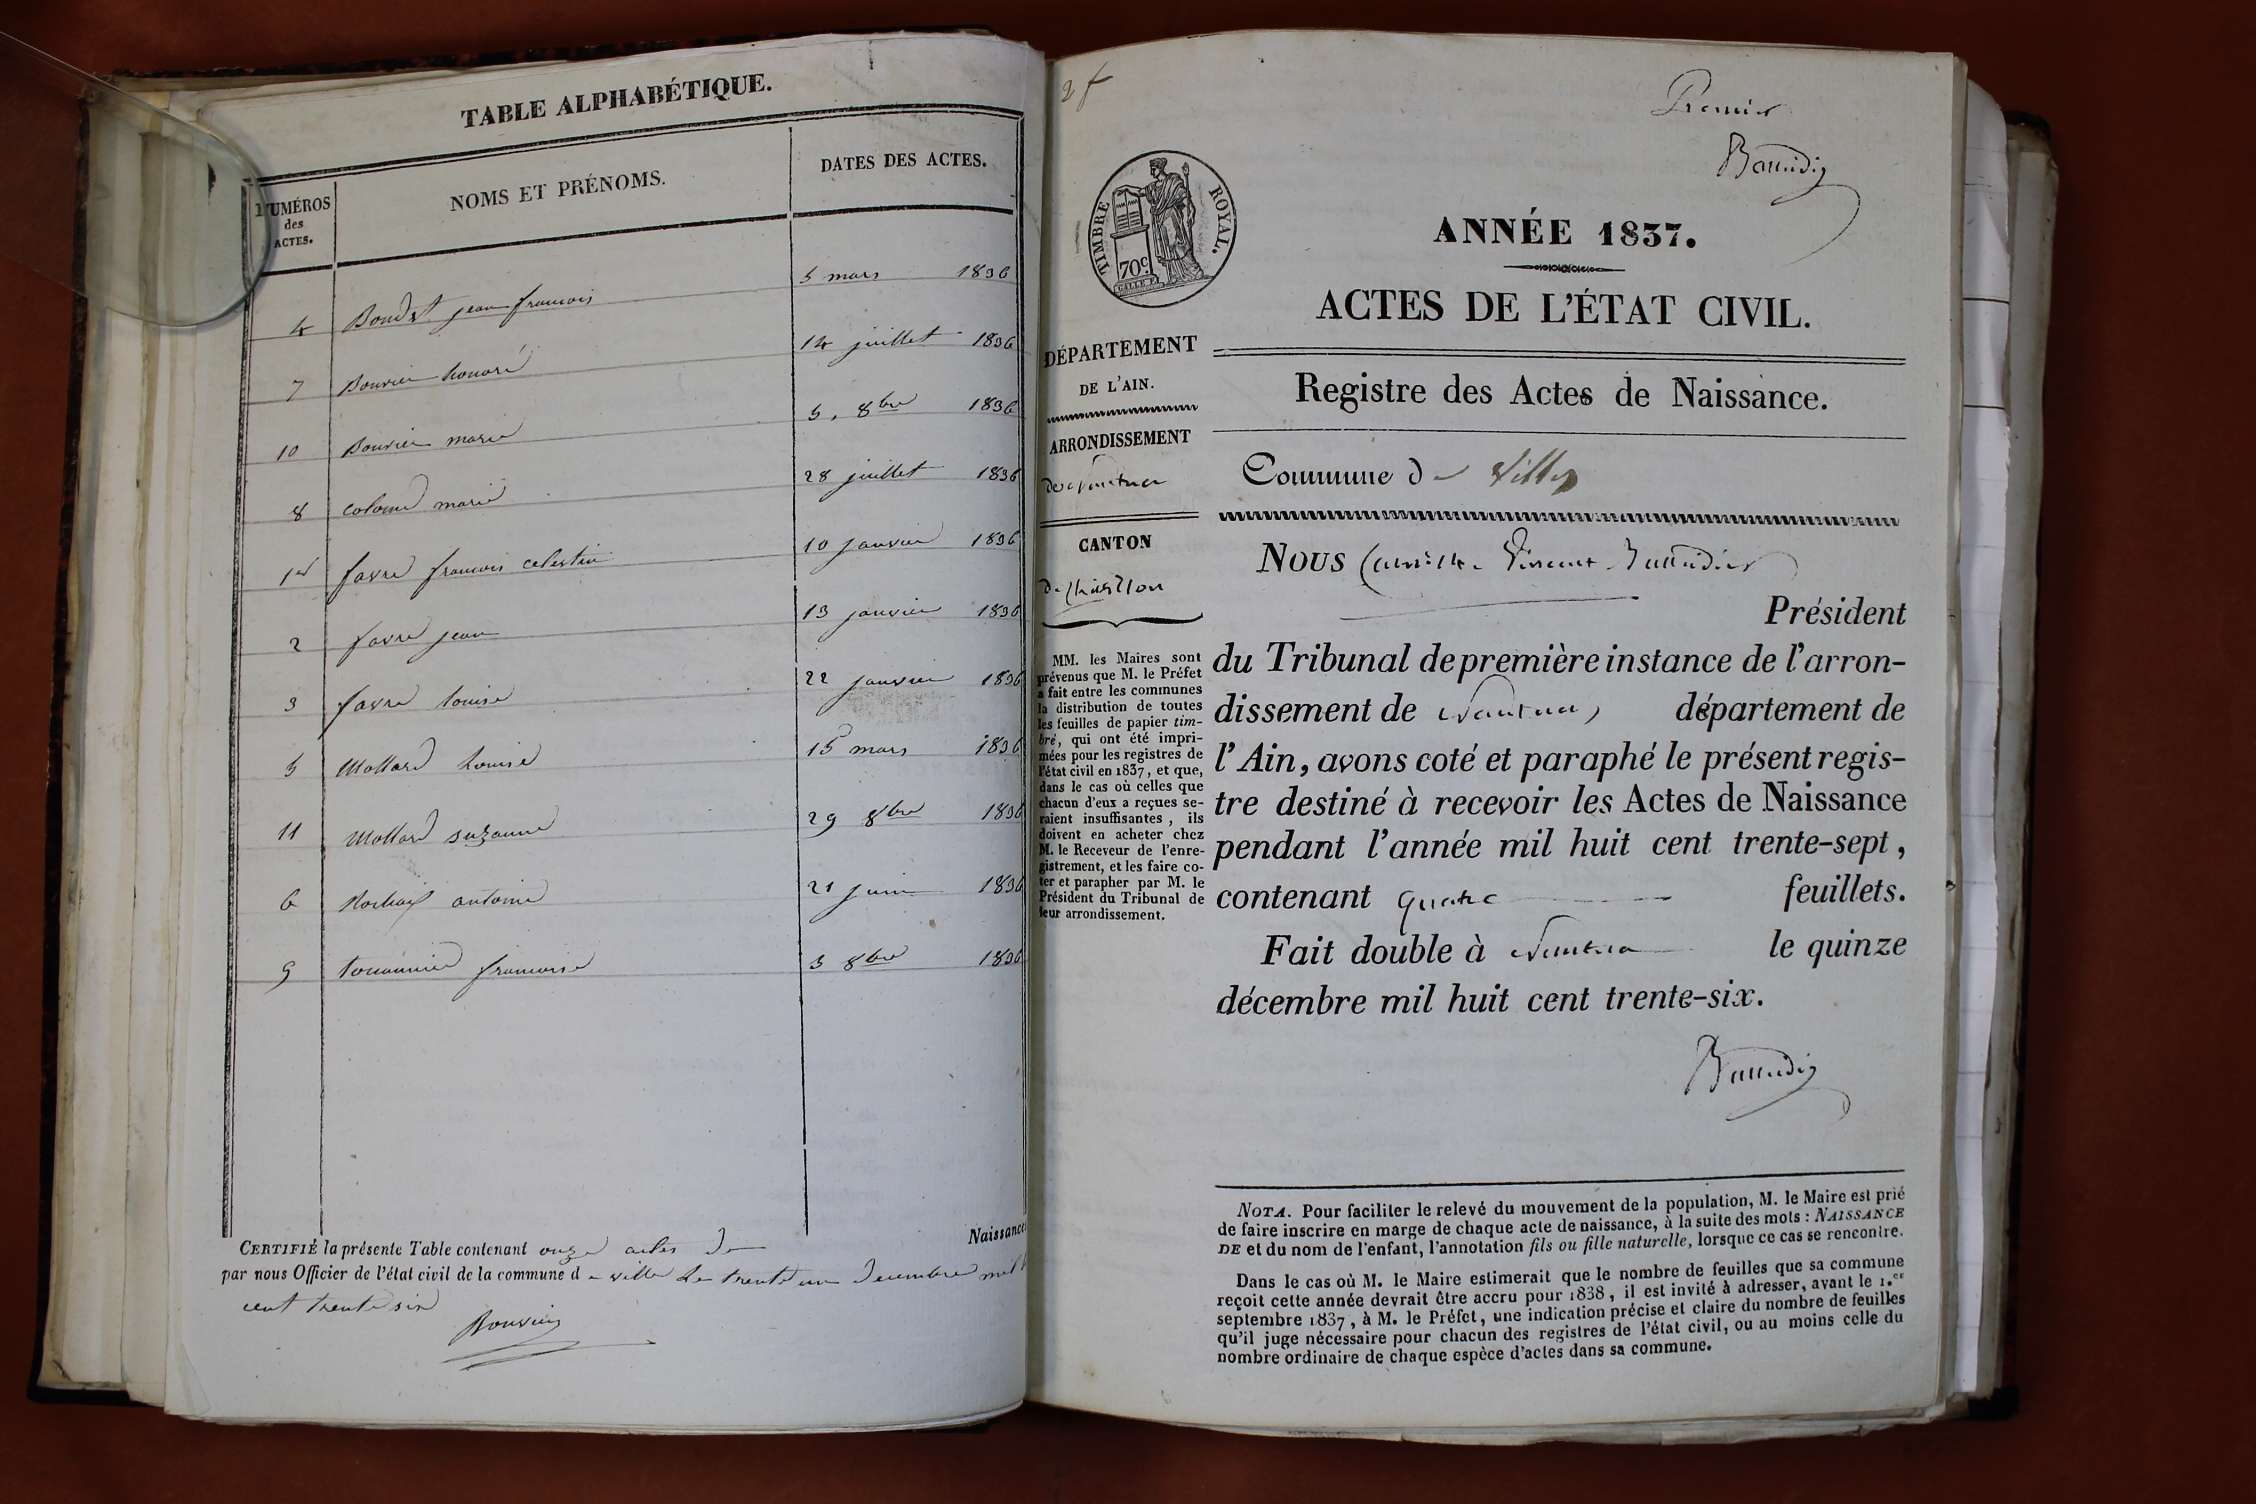 TABLE ALPHABÉTIQUE.
NUMÉROS
des
ACTES.
NOMS ET PRÉNOMS.
DATES DES ACTES.
4 Boudet jean francois 5 mars 1836
7 Bouvier honoré 14 juillet 1836
10 Bouvier marie 5. 8bre 1836
8 marie 28 juillet 1836
1er favre francois celestin 10 janvier 1836
2 favre jean 13 janvier 1836
3 favre louise 22 janvier 1836
5 Mollard louise 15 mars 1836
11 Mollard suzanne 29 8bre 1836
6 antoine 21 juin 1836
9 francoise 3 8bre 1836
Naissances
CERTIFIÉ la présente Table contenant onze actes de
par nous Officier de l'état civil de la commune de ville le trente un decembre mil
cent trente six
Bouvier
2 f
Premier
TIMBRE ROYAL.
70 c.
ANNÉE 1837.
ACTES DE L'ÉTAT CIVIL.
Registre des Actes de Naissance.
DÉPARTEMENT
DE L'AIN.
ARRONDISSEMENT
de Nantua
CANTON
de Chatillon
MM. les Maires sont
prévenus que M. le Préfet
a fait entre les communes
la distribution de toutes
les feuilles de papier tim-
bré, qui ont été impri-
mées pour les registres de
l'état civil en 1837, et que,
dans le cas où celles que
chacun d'eux a reçues se-
raient insuffisantes, ils
doivent en acheter chez
M. le Receveur de l'enre-
gistrement, et les faire co-
ter et parapher par M. le
Président du Tribunal de
leur arrondissement.
Commune de Villes
NOUS Camille Vincent
Président
du Tribunal de première instance de l'arron-
dissement de Nantua, département de
l'Ain, avons coté et paraphé le présent regis-
tre destiné à recevoir les Actes de Naissance
pendant l'année mil huit cent trente-sept,
contenant quatre feuillets.
Fait double à Nantua le quinze
décembre mil huit cent trente-six.
NOTA. Pour faciliter le relevé du mouvement de la population, M. le Maire est prié
de faire inscrire en marge de chaque acte de naissance, à la suite des mots : NAISSANCE
DE et du nom de l'enfant, l'annotation fils ou fille naturelle, lorsque ce cas se rencontre.
Dans le cas où M. le Maire estimerait que le nombre de feuilles que sa commune
reçoit cette année devrait être accru pour 1838, il est invité à adresser, avant le 1.er
septembre 1837, à M. le Préfet, une indication précise et claire du nombre de feuilles
qu'il juge nécessaire pour chacun des registres de l'état civil, ou au moins celle du
nombre ordinaire de chaque espèce d'actes dans sa commune.